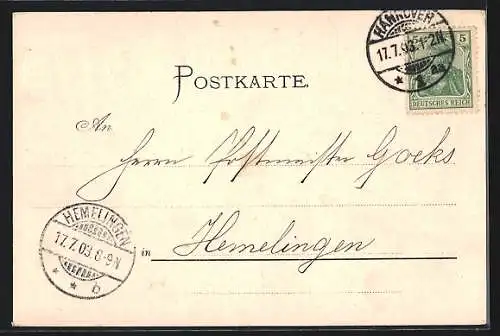 HANNOVER
17.7.03.1-2N
5 5
DEUTSCHES REICH
POSTKARTE.
An
Herrn Postmeister Goeks
HEMELINGEN
17.7.03.8-9N
* * b
in Hemelingen